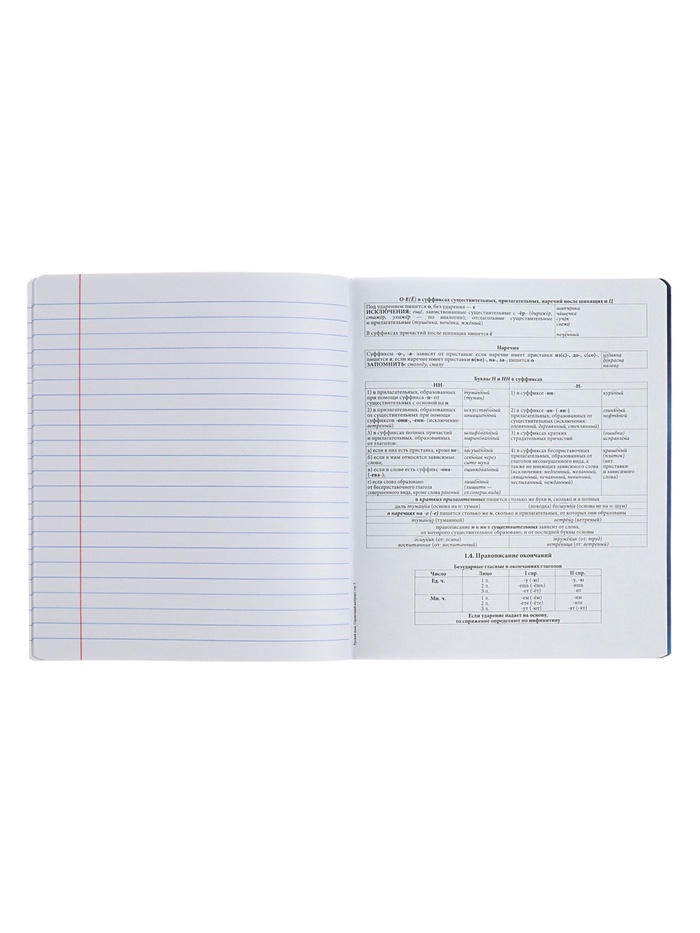 О-Е(Ё) в суффиксах существительных, прилагательных, наречий после шипящих и Ц
Под ударением пишется о, без ударения — е
ИСКЛЮЧЕНИЯ: ещё, заимствованные существительные с -ёр- (дирижёр,
стажёр, ухажёр — по аналогии); отглагольные существительные
и прилагательные (тушёнка, печёнка, жжёный)
чашечка
сучок
свежо
В суффиксах причастий после шипящих пишется ё
Наречия
Суффиксы -о-, -а- зависят от приставки: если наречие имеет приставки из(с)-, до-, с(со)-,
пишется а; если наречие имеет приставки в(во)-, на-, за-, пишется о
ЗАПОМНИТЬ: смолоду, сразу
издавна
докрасна
налево
Буквы Н и НН в суффиксах
-НН-
-Н-
1) в прилагательных, образованных
при помощи суффикса -н- от
существительных с основой на н
туманный
(туман)
1) в суффиксе -ин-
куриный
2) в прилагательных, образованных
от существительных при помощи
суффиксов -онн-, -енн- (исключение:
ветреный)
искусственный
авиационный
2) в суффиксе -ан- (-ян-)
прилагательных, образованных от
существительных (исключения:
оловянный, деревянный, стеклянный)
глиняный
нефтяной
3) в суффиксах полных причастий
и прилагательных, образованных
от глаголов:
маринованный
3) в суффиксах кратких
страдательных причастий
(ошибка)
исправлена
а) если в них есть приставка, кроме не-;
засушенный
б) если к ним относятся зависимые
слова;
сеянная через
сито мука
в) если в слове есть суффикс -ова-
(-ева-);
г) если слово образовано
от бесприставочного глагола
совершенного вида, кроме слова раненый
(лишить —
гл.соверш.вида)
4) в суффиксах бесприставочных
прилагательных, образованных от
глаголов несовершенного вида, а
также не имеющих зависимого слова
(исключения: медленный, желанный,
священный, нечаянный, невиданный,
неслыханный, нежданный)
крашеный
(платок)
(нет
приставки
и зависимого
слова)
в кратких прилагательных пишется столько же букв н, сколько и в полных
даль туманна (основа на н: туман)
(походка) бесшумна (основа не на н: шум)
в наречиях на -о (-е) пишется столько же н, сколько в прилагательных, от которых они образованы
туманно (туманный)
ветрено (ветреный)
правописание н и нн в существительных зависит от слова,
от которого существительное образовано, и от последней буквы основы
осинник (от: осина)
труженик (от: труд)
воспитанник (от: воспитанный)
ветреница (от: ветреный)
1.4. Правописание окончаний
Безударные гласные в окончаниях глаголов
Число Лицо I спр. II спр.
Ед. ч. 1 л. -у (-ю) -у, -ю
2 л. -ешь (-ёшь) -ишь
3 л. -ет (-ёт) -ит
Мн. ч. 1 л. -ем (-ём) -им
2 л. -ете (-ёте) -ите
3 л. -ут (-ют) -ат (-ят)
Если ударение падает на основу,
то спряжение определяют по инфинитиву